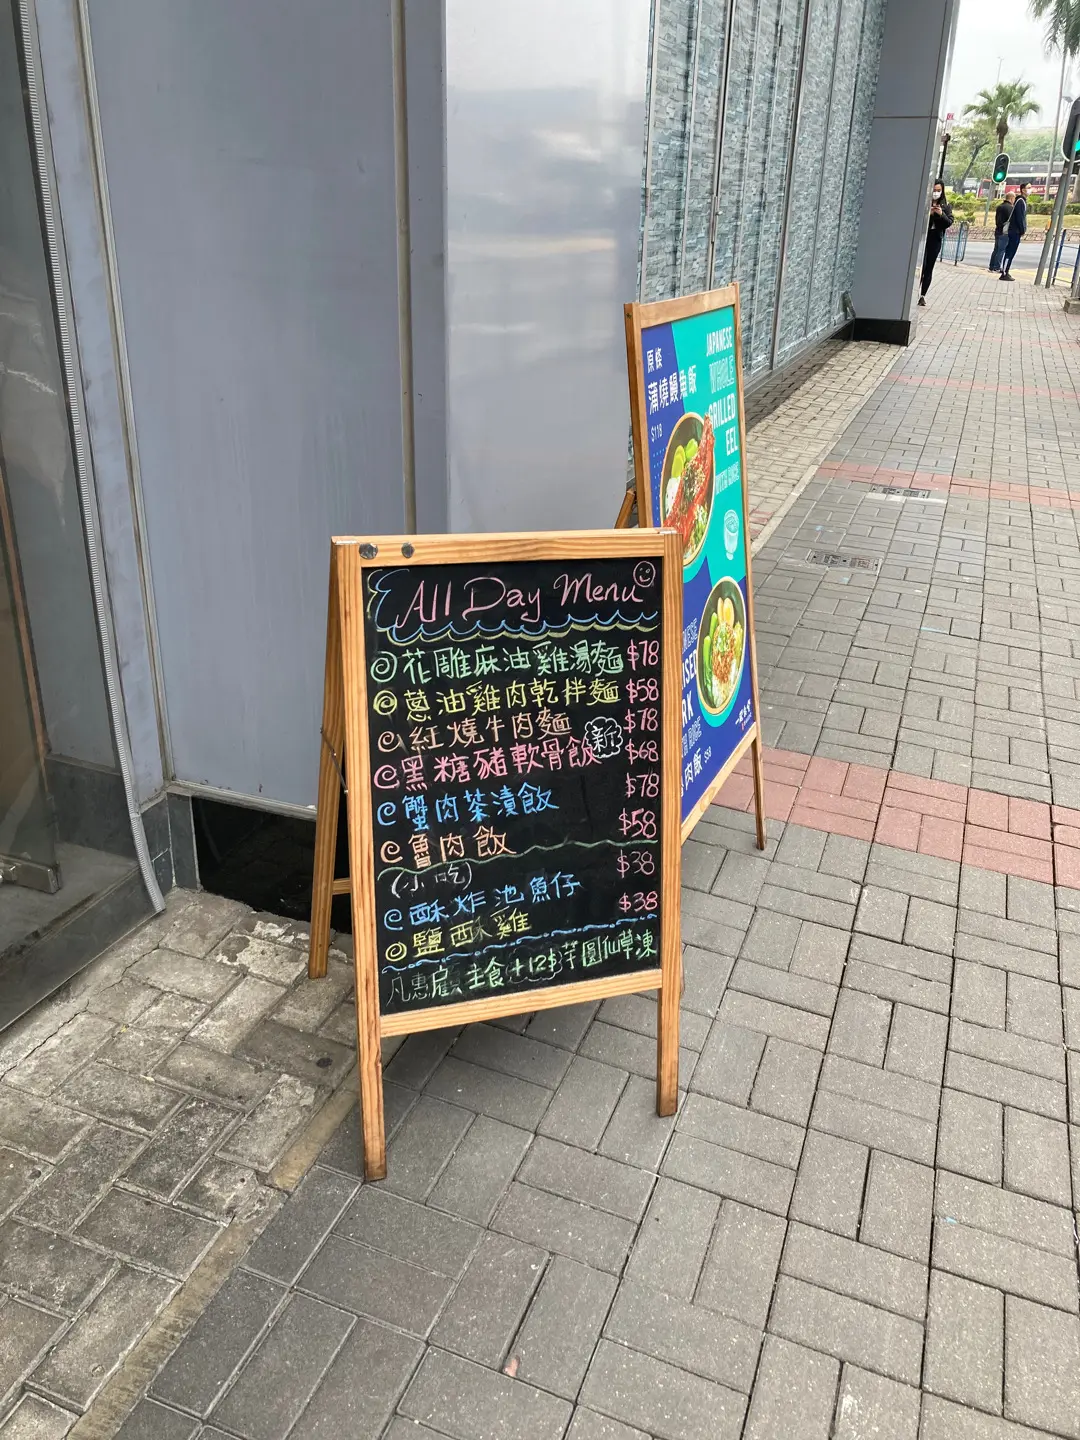 All Day Menu
花雕麻油雞湯麵 $78
蔥油雞肉乾拌麵 $58
紅燒牛肉麵 $78
黑糖豬軟骨飯 新 $68
蟹肉茶漬飯 $78
魯肉飯 $58
(小吃)
酥炸池魚仔 $38
鹽酥雞 $38
凡惠顧主食+12$芋圓仙草凍
原條
蒲燒鰻魚飯
$118
JAPANESE
WHOLE
GRILLED
EEL
WITH RICE
肉飯 $58